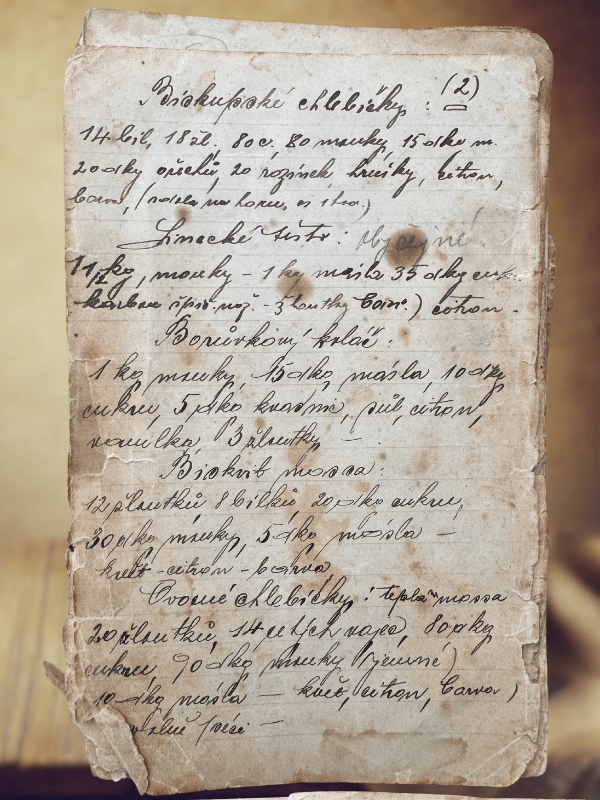 Biskupské chlebíčky : (2)
14 bíl, 18 žl, 80 c, 80 mouky, 15 dkg m.
20 dkg ořechů, 20 rozinek hrušky, citron,
barva,
Linecké těsto : obyčejné
1 kg másla 35 dkg cuk.
citron -
Borůvkový koláč :
1 kg mouky, 15 dkg másla, 10 dkg
cukru, 5 dkg kvasnic, sůl, citron,
vanilka, 3 žloutky —
Biskvit massa :
12 žloutků 8 bílků, 20 dkg cukru,
30 dkg mouky, 5 dkg másla —
květ - citron - barva
Ovocné chlebíčky : teplá massa
20 žloutků, 14 celých vajec, 80 dkg
cukru, 90 dkg mouky (jemné)
10 dkg másla — květ, citron, barva )